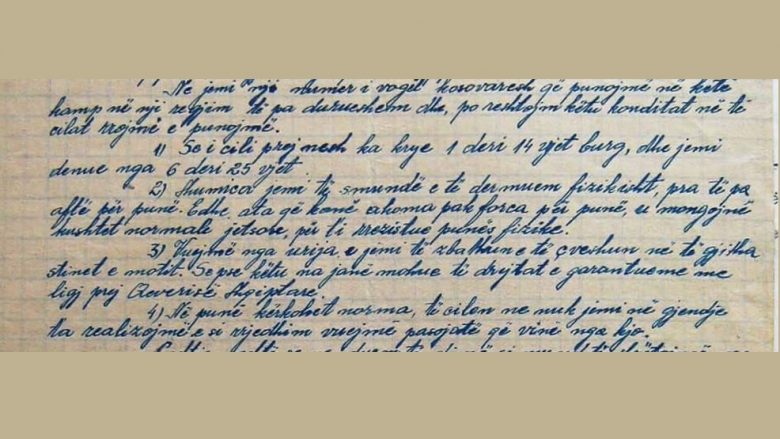 Ne jemi një numër i vogël kosovarësh që punojmë në këtë
kamp në nji rezhim të pa durueshëm dhe, po reshtojm këtu konditat në të
cilat rrojmë e punojmë.
1) Se i cili prej nesh ka krye 1 deri 14 vjet burg, dhe jemi
denue nga 6 deri 25 vjet.
2) Shumica jemi të smundë e të dermuem fizikisht, pra të pa
aftë për punë. Edhe ata që kanë akoma pak forca për punë, u mongojnë
kushtet normale jetsore, për ti rrezistue punës fizike.
3) Vuejmë nga urija e jemi të zbathun e të çveshun në të gjitha
stinët e motit. Sepse këtu na janë mohue të drejtat e garantueme me
ligj prej Qeverisë Shqiptare.
4) Në punë kërkohet norma, të cilën ne nuk jemi në gjendje
ta realizojmë e si rrjedhim vuejmë pasojatë që vinë nga kjo.